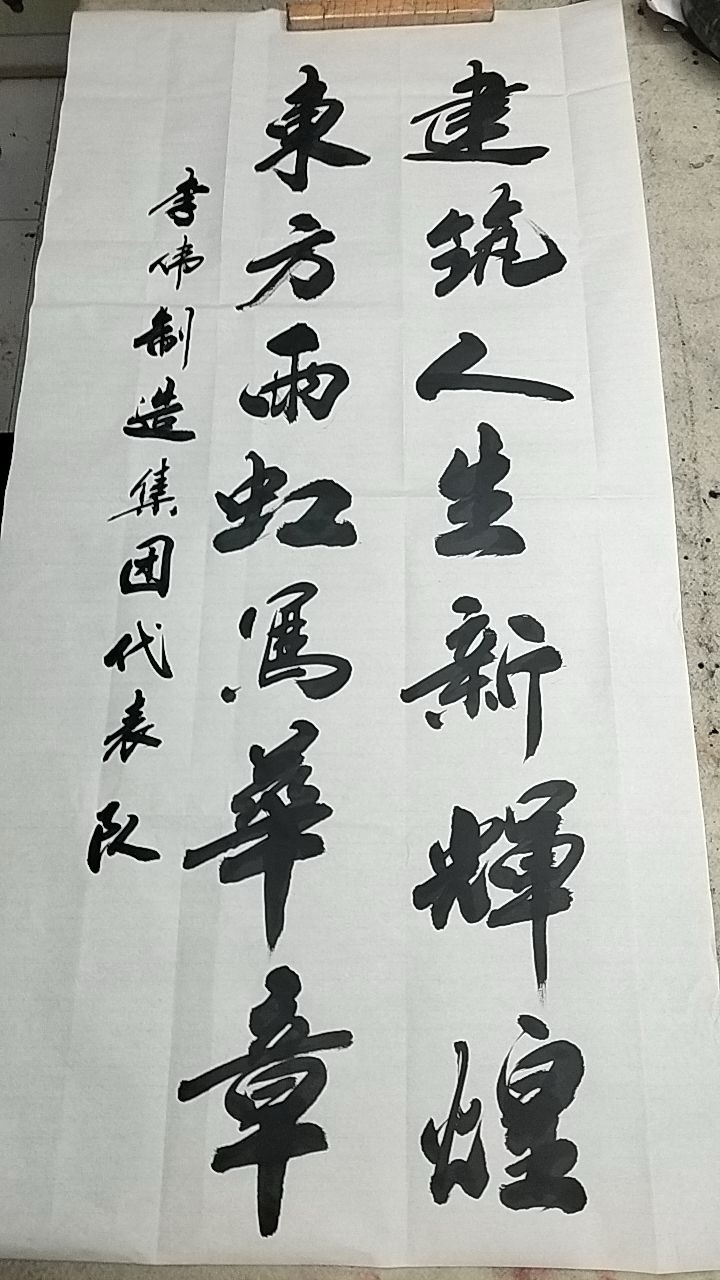 建筑人生新輝煌
東方雨虹寫華章
李伟制造集团代表队